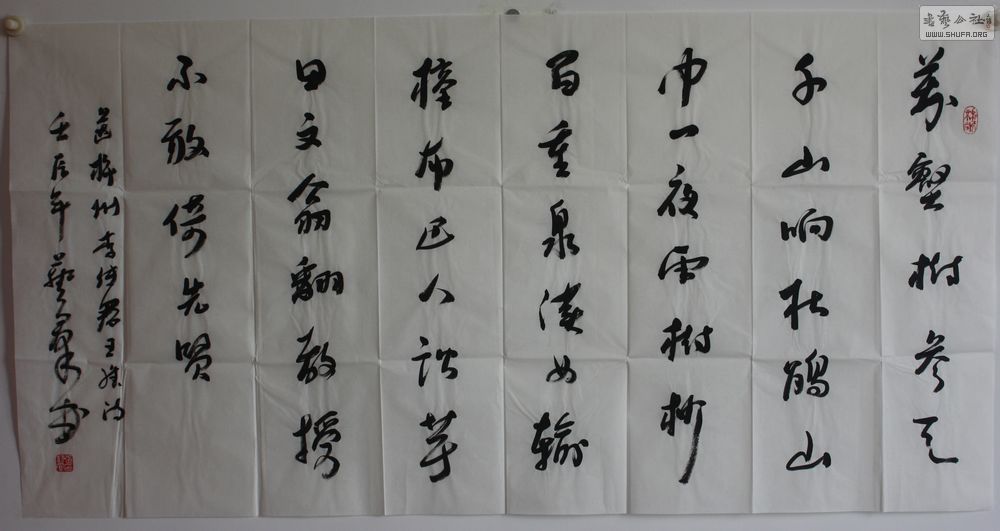 萬壑樹參天
千山响杜鵑山
中一夜雨樹杪
百重泉漢女輸
橦布巴人訟芋
田文翁翻教授
不敢倚先賢
送梓州李使君王維詩
壬辰年書
书艺公社
WWW.SHUFA.ORG